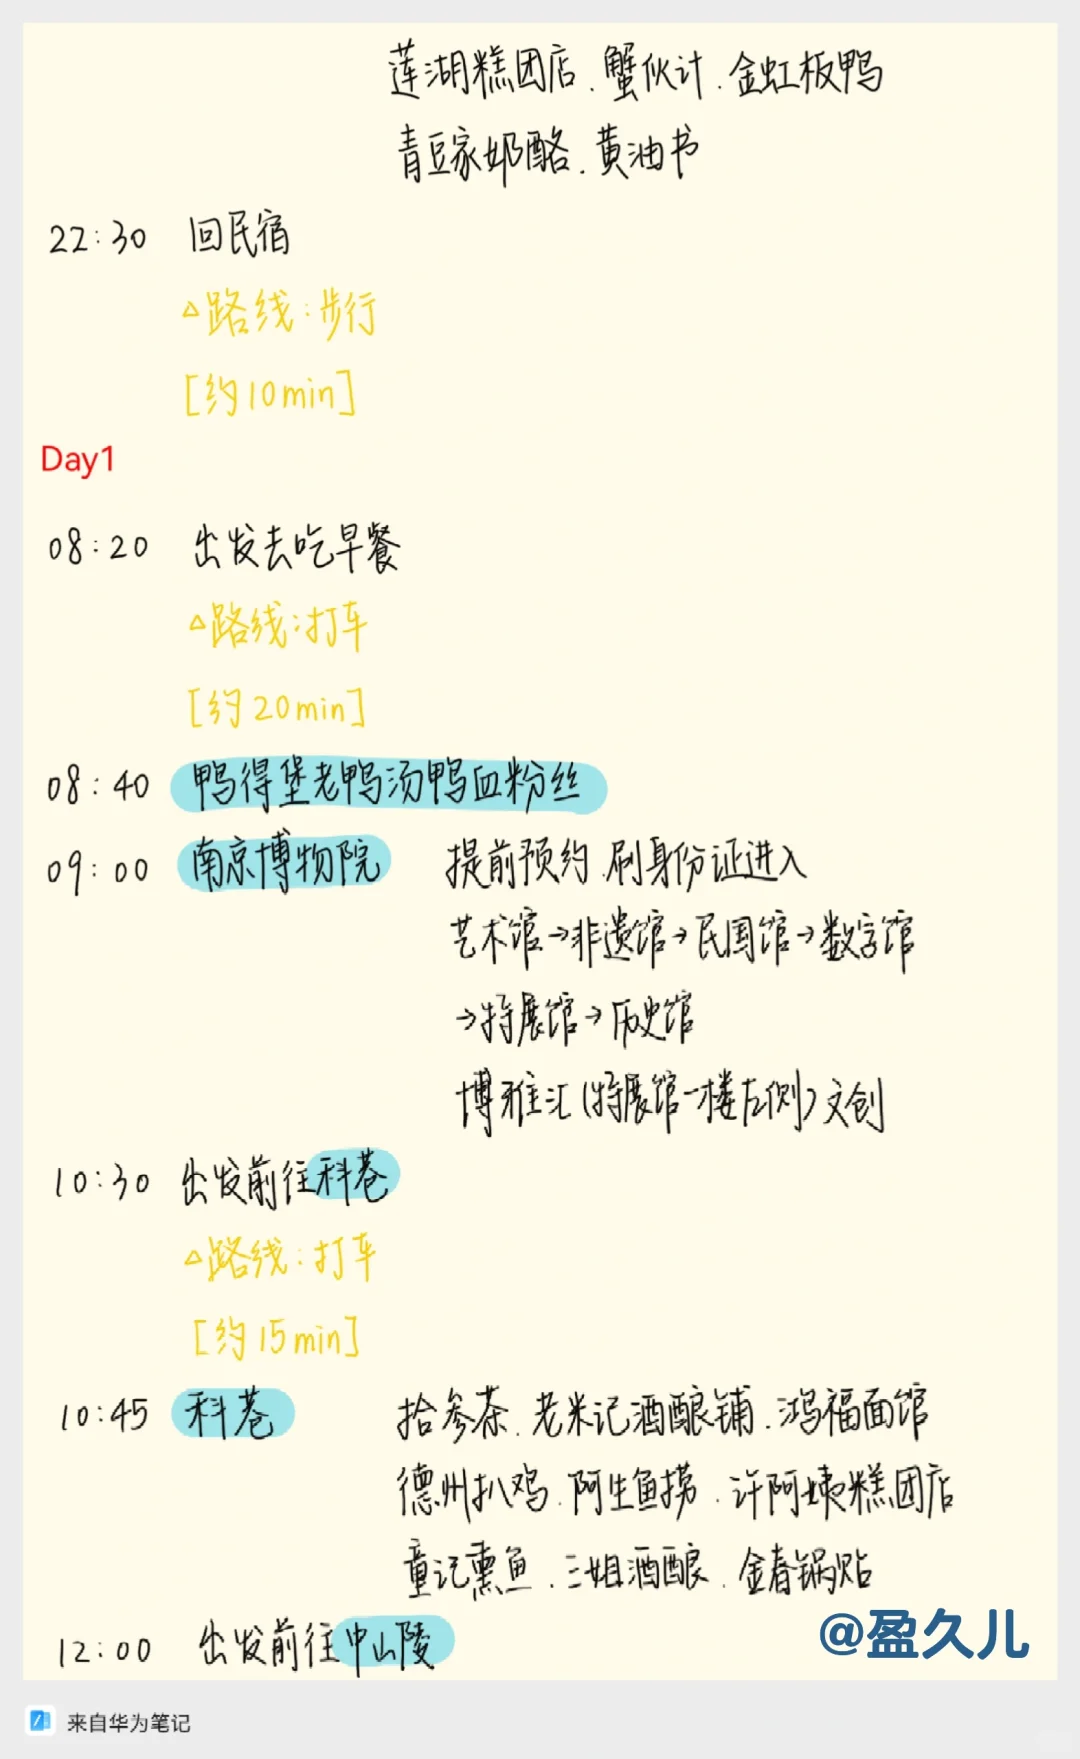 莲湖糕团店.蟹伙计.金虹板鸭
青豆家奶酪.黄油书
22:30 回民宿
△路线:步行
[约10min]
Day1
08:20 出发去吃早餐
△路线:打车
[约20min]
08:40 鸭得堡老鸭汤鸭血粉丝
09:00 南京博物院 提前预约.刷身份证进入
艺术馆→非遗馆→民国馆→数字馆
→特展馆→历史馆
博雅汇(特展馆一楼左侧)文创
10:30 出发前往科巷
△路线:打车
[约15min]
10:45 科巷 拾参茶.老米记酒酿铺.鸿福面馆
德州扒鸡.阿生鱼捞.许阿姨糕团店
童记熏鱼.三姐酒酿.金春锅贴
12:00 出发前往中山陵
@盈久儿
来自华为笔记